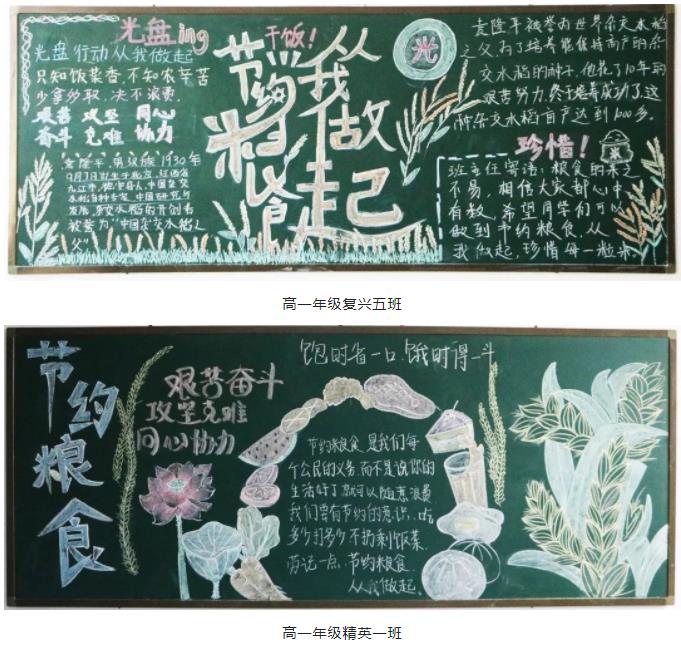 光盘ing
光盘行动从我做起
只知饭菜香，不知农辛苦
少拿多取，决不浪费.
艰苦 攻坚 同心
奋斗 克难 协力
袁隆平，男汉族1930年
9月7日出生于北京，江西省
九江市德安县人，中国杂交
水稻育种专家，中国研究与
发展杂交水稻的开创者
被誉为“中国杂交水稻之
父”
干饭！
节约粮食
从我做起
光
袁隆平被誉为世界杂交水稻
之父，为了培养能保持高产的杂
交水稻的种子，他花了10年的
艰苦努力，终于培养成功了这
种杂交水稻亩产达到1000多.
珍惜！
班主任寄语：粮食的来之
不易，相信大家都心中
有数，希望同学们可以
做到节约粮食，从
我做起，珍惜每一粒米
高一年级复兴五班
节约粮食
艰苦奋斗
攻坚克难
同心协力
饱时省一口，饿时得一斗
节约粮食，是我们每
个公民的义务，而不是说你的
生活好了就可以随意浪费
我们要有节约的意识，吃
多少打多少不扔剩饭菜.
节约粮食
从我做起.
高一年级精英一班